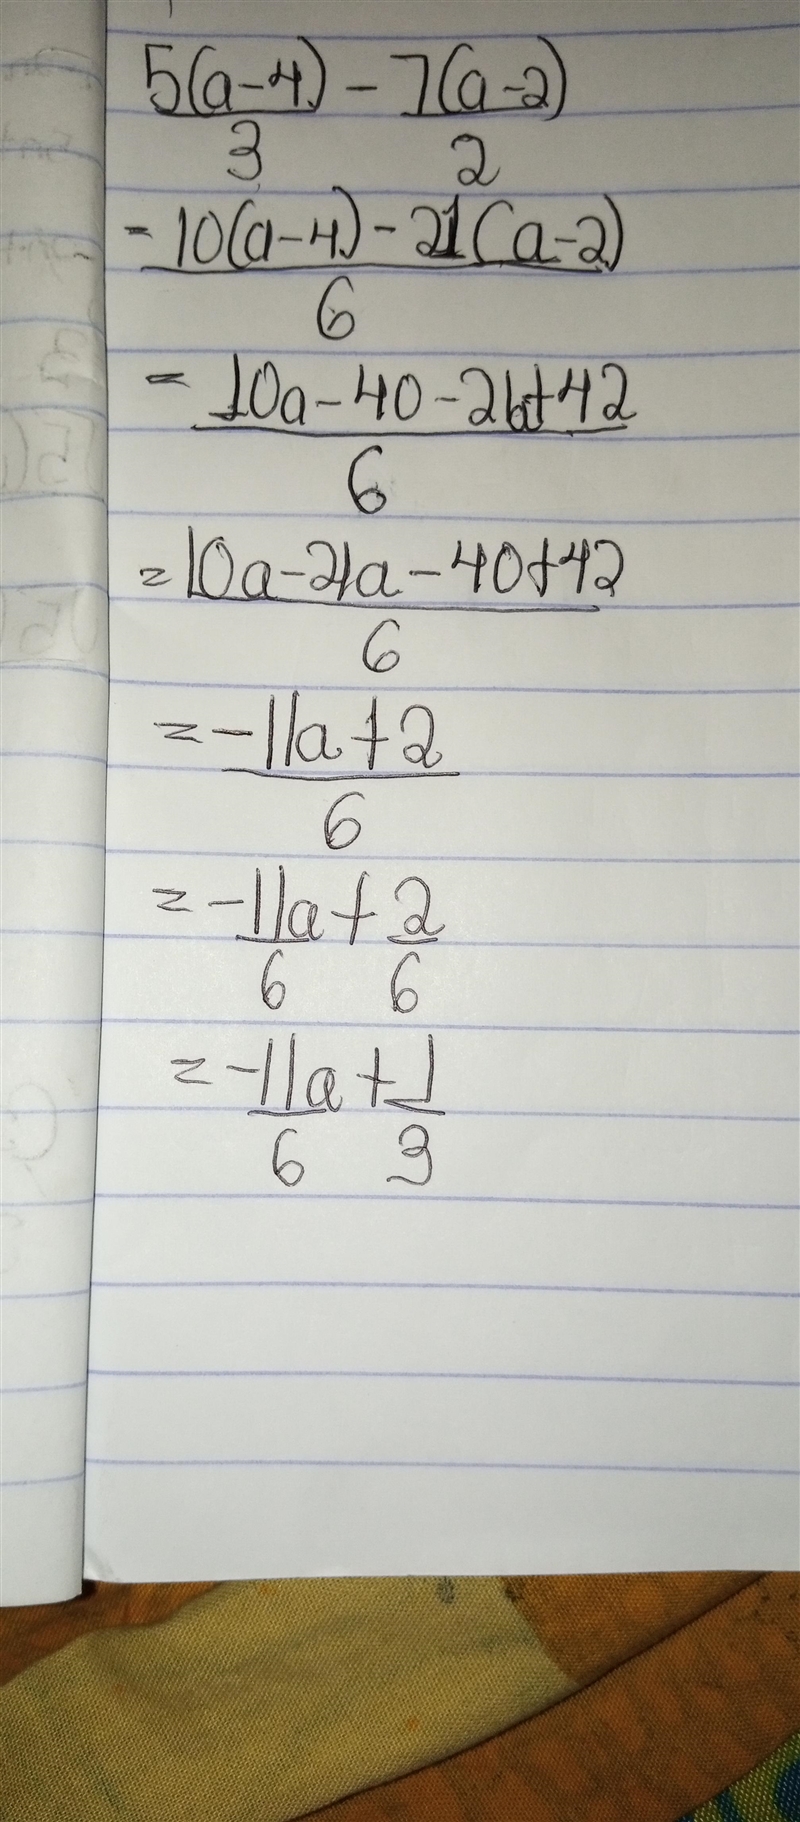 5(a-4) - 7(a-2)
3 2
= 10(a-4) - 21(a-2)
6
= 10a - 40 - 21a + 42
6
= 10a - 21a - 40 + 42
6
= -11a + 2
6
= -11a + 2
6 6
= -11a + 1
6 3